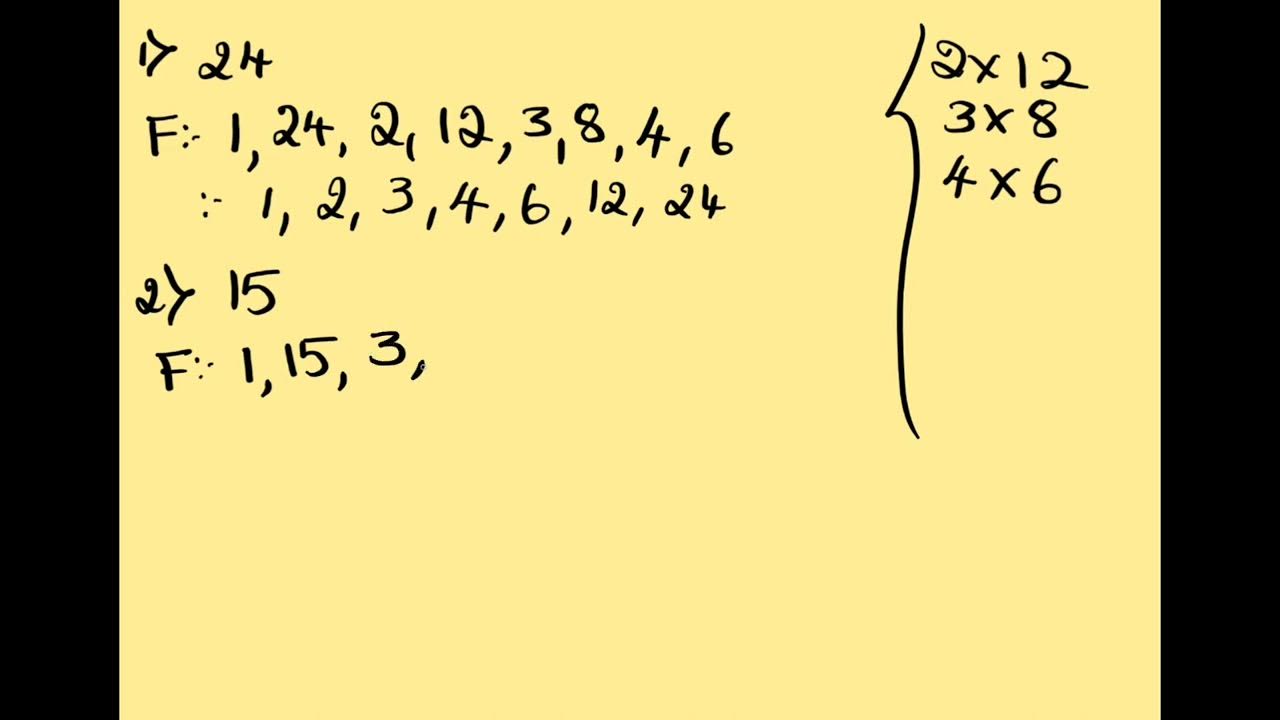 1> 24
F:- 1, 24, 2, 12, 3, 8, 4, 6
:- 1, 2, 3, 4, 6, 12, 24
2> 15
F:- 1, 15, 3,
2x12
3x8
4x6